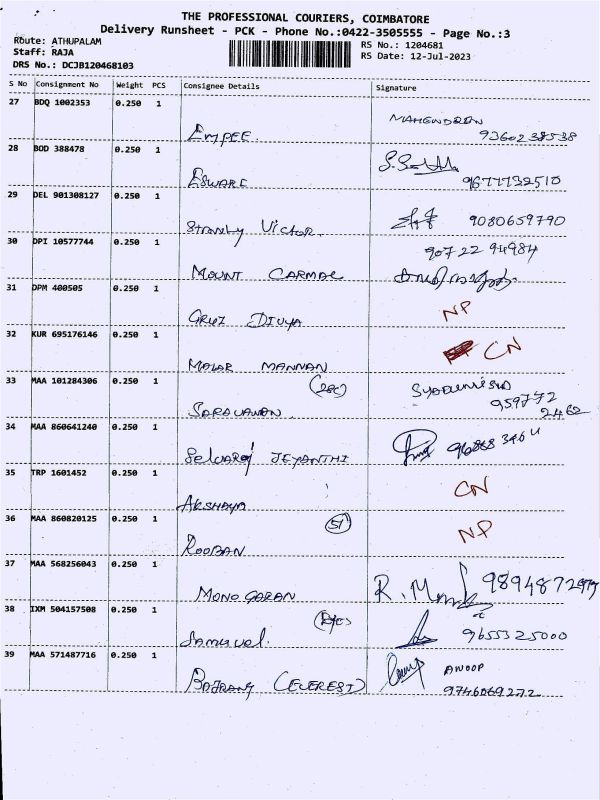 THE PROFESSIONAL COURIERS, COIMBATORE
Delivery Runsheet - PCK - Phone No.:0422-3505555 - Page No.:3
Route: ATHUPALAM
RS No.: 1204681
Staff: RAJA
RS Date: 12-Jul-2023
DRS No.: DCJB120468103
S No Consignment No Weight PCS Consignee Details Signature
27 BDQ 1002353 0.250 1
EMPEE. MAHENDRAN
9360238538
28 BOD 388478 0.250 1
ESWARE 9677732510
29 DEL 901308127 0.250 1
Stranly Victor. 9080659790
30 DPI 10577744 0.250 1
90722 94984
MOUNT CARMAL
31 DPM 400505 0.250 1
CRUZ DIVYA NP
32 KUR 695176146 0.250 1
MALAR MANNAN CN
33 MAA 101284306 0.250 1
SARAVANAN 959772
2462
34 MAA 860641240 0.250 1
Selvaraj JEYANTHI
35 TRP 1601452 0.250 1
AKSHAYA CN
36 MAA 860820125 0.250 1
ROOBAN NP
37 MAA 568256043 0.250 1
MONOGARAN
38 IXM 504157508 0.250 1
Samuvel. 9655325000
39 MAA 571487716 0.250 1
BAJRANG (EVEREST) ANOOP
9746069272